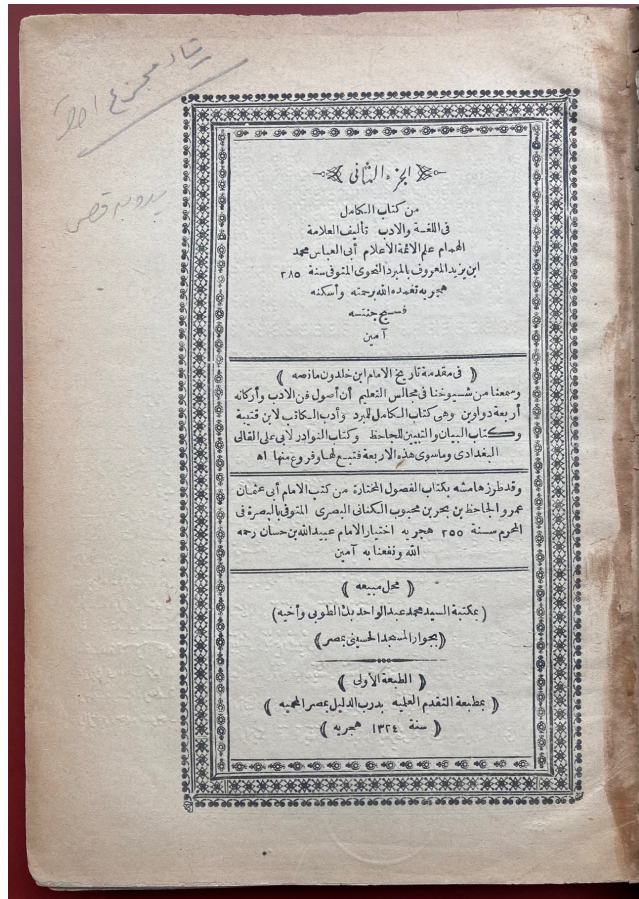 الجزء الثانى
من كتاب الكامل
فى اللغة والادب تأليف العلامة
الهمام علم الائمة الأعلام أبى العباس محمد
ابن يزيد المعروف بالمبرد النحوى المتوفى سنة ٢٨٥
هجرية تغمده الله برحمته وأسكنه
فسيح جنته
آمين
﴿ فى مقدمة تاريخ الامام ابن خلدون مانصه ﴾
وسمعنا من شيوخنا فى مجالس التعليم أن أصول فن الادب وأركانه
أربعة دواوين وهى كتاب الكامل للمبرد وأدب الكاتب لابن قتيبة
وكتاب البيان والتبيين للجاحظ وكتاب النوادر لابى على القالى
البغدادى وماسوى هذه الاربعة فتبع لها وفروع منها اه
وقد طرز هامشه بكتاب الفصول المختارة من كتب الامام أبى عثمان
عمرو الجاحظ بن بحر بن محبوب الكنانى البصرى المتوفى بالبصرة فى
المحرم سنة ٢٥٥ هجرية اختيار الامام عبيد الله بن حسان رحمه
الله ونفعنا به آمين
﴿ محل مبيعه ﴾
(بمكتبة السيد محمد عبد الواحد بك الطوبى وأخيه)
﴿بجوار المسجد الحسينى بمصر﴾
﴿ الطبعة الأولى ﴾
﴿ بمطبعة التقدم العلمية بدرب الدليل بمصر المحمية ﴾
﴿ سنة ١٣٢٤ هجرية ﴾